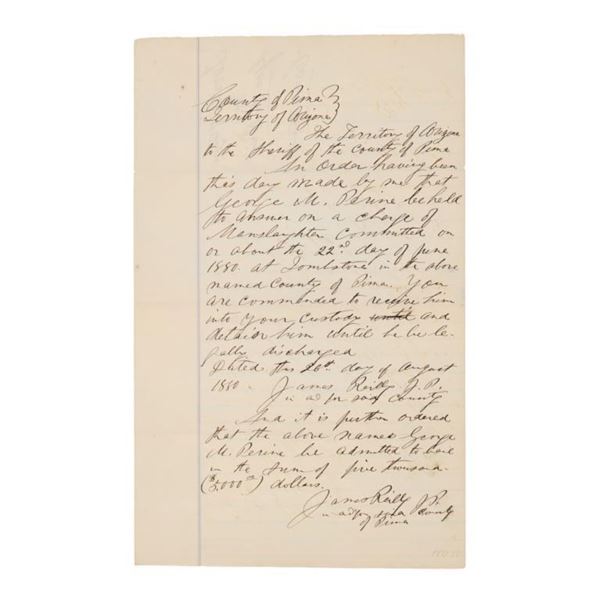 County of Pima }
Territory of Arizona }
The Territory of Arizona
to the Sheriff of the County of Pima
An Order having been
this day made by me that
George M. Perine be held
to answer on a charge of
Manslaughter committed on
or about the 22nd day of June
1880. at Tombstone in the above
named County of Pima. You
are commanded to receive him
into your custody until and
detain him until he be le-
gally discharged
Dated this 20th day of August
1880.
James Reilly J.P.
in and for said County
And it is further ordered
that the above named George
M. Perine be admitted to bail
in the sum of five thousan
($5,000 00) dollars.
James Reilly J.P.
in and for said County
of Pima